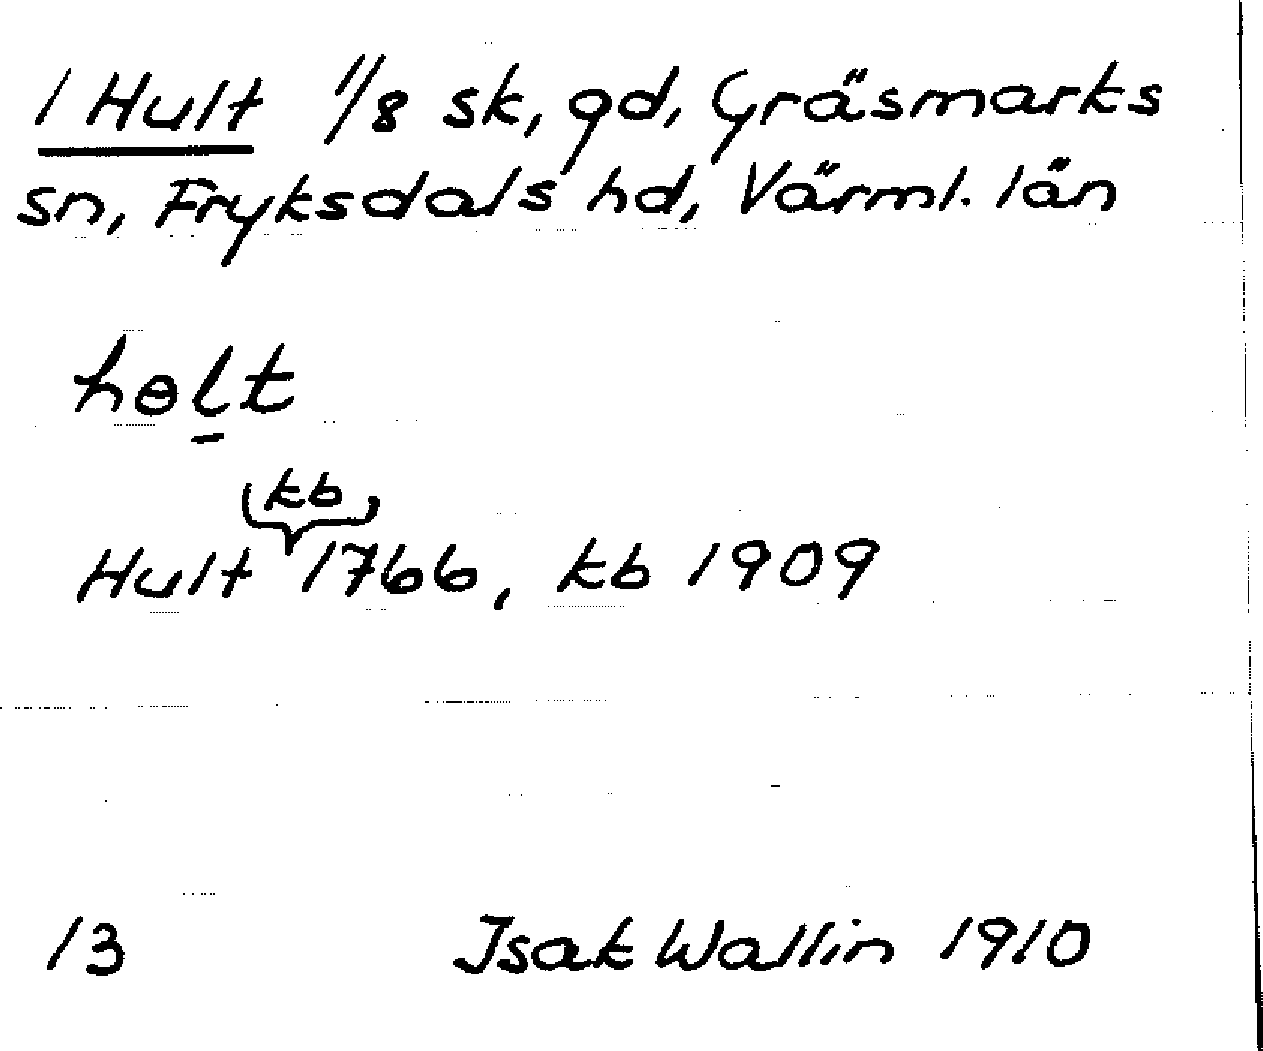 1 Hult 1/8 sk, gd, Gräsmarks
sn, Fryksdals hd, Värml. län
hɵl̠t
kb
Hult 1766, kb 1909
13 Isak Wallin 1910